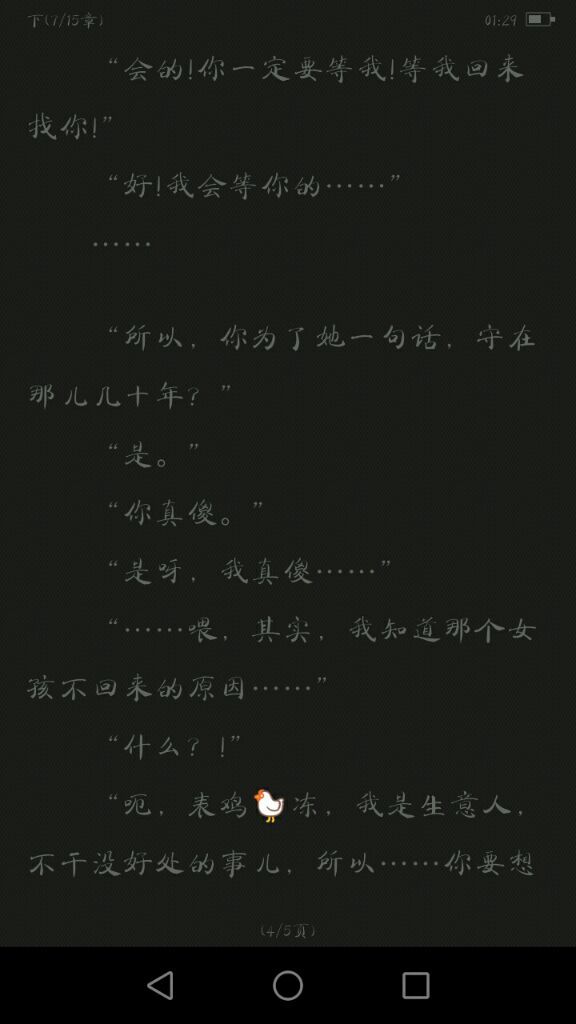 下(7/15章) 01:29
“会的!你一定要等我!等我回来
找你!”
“好!我会等你的……”
……
“所以，你为了她一句话，守在
那儿几十年？”
“是。”
“你真傻。”
“是呀，我真傻……”
“……喂，其实，我知道那个女
孩不回来的原因……”
“什么？!”
“呃，表鸡🐔冻，我是生意人，
不干没好处的事儿，所以……你要想
(4/5页)